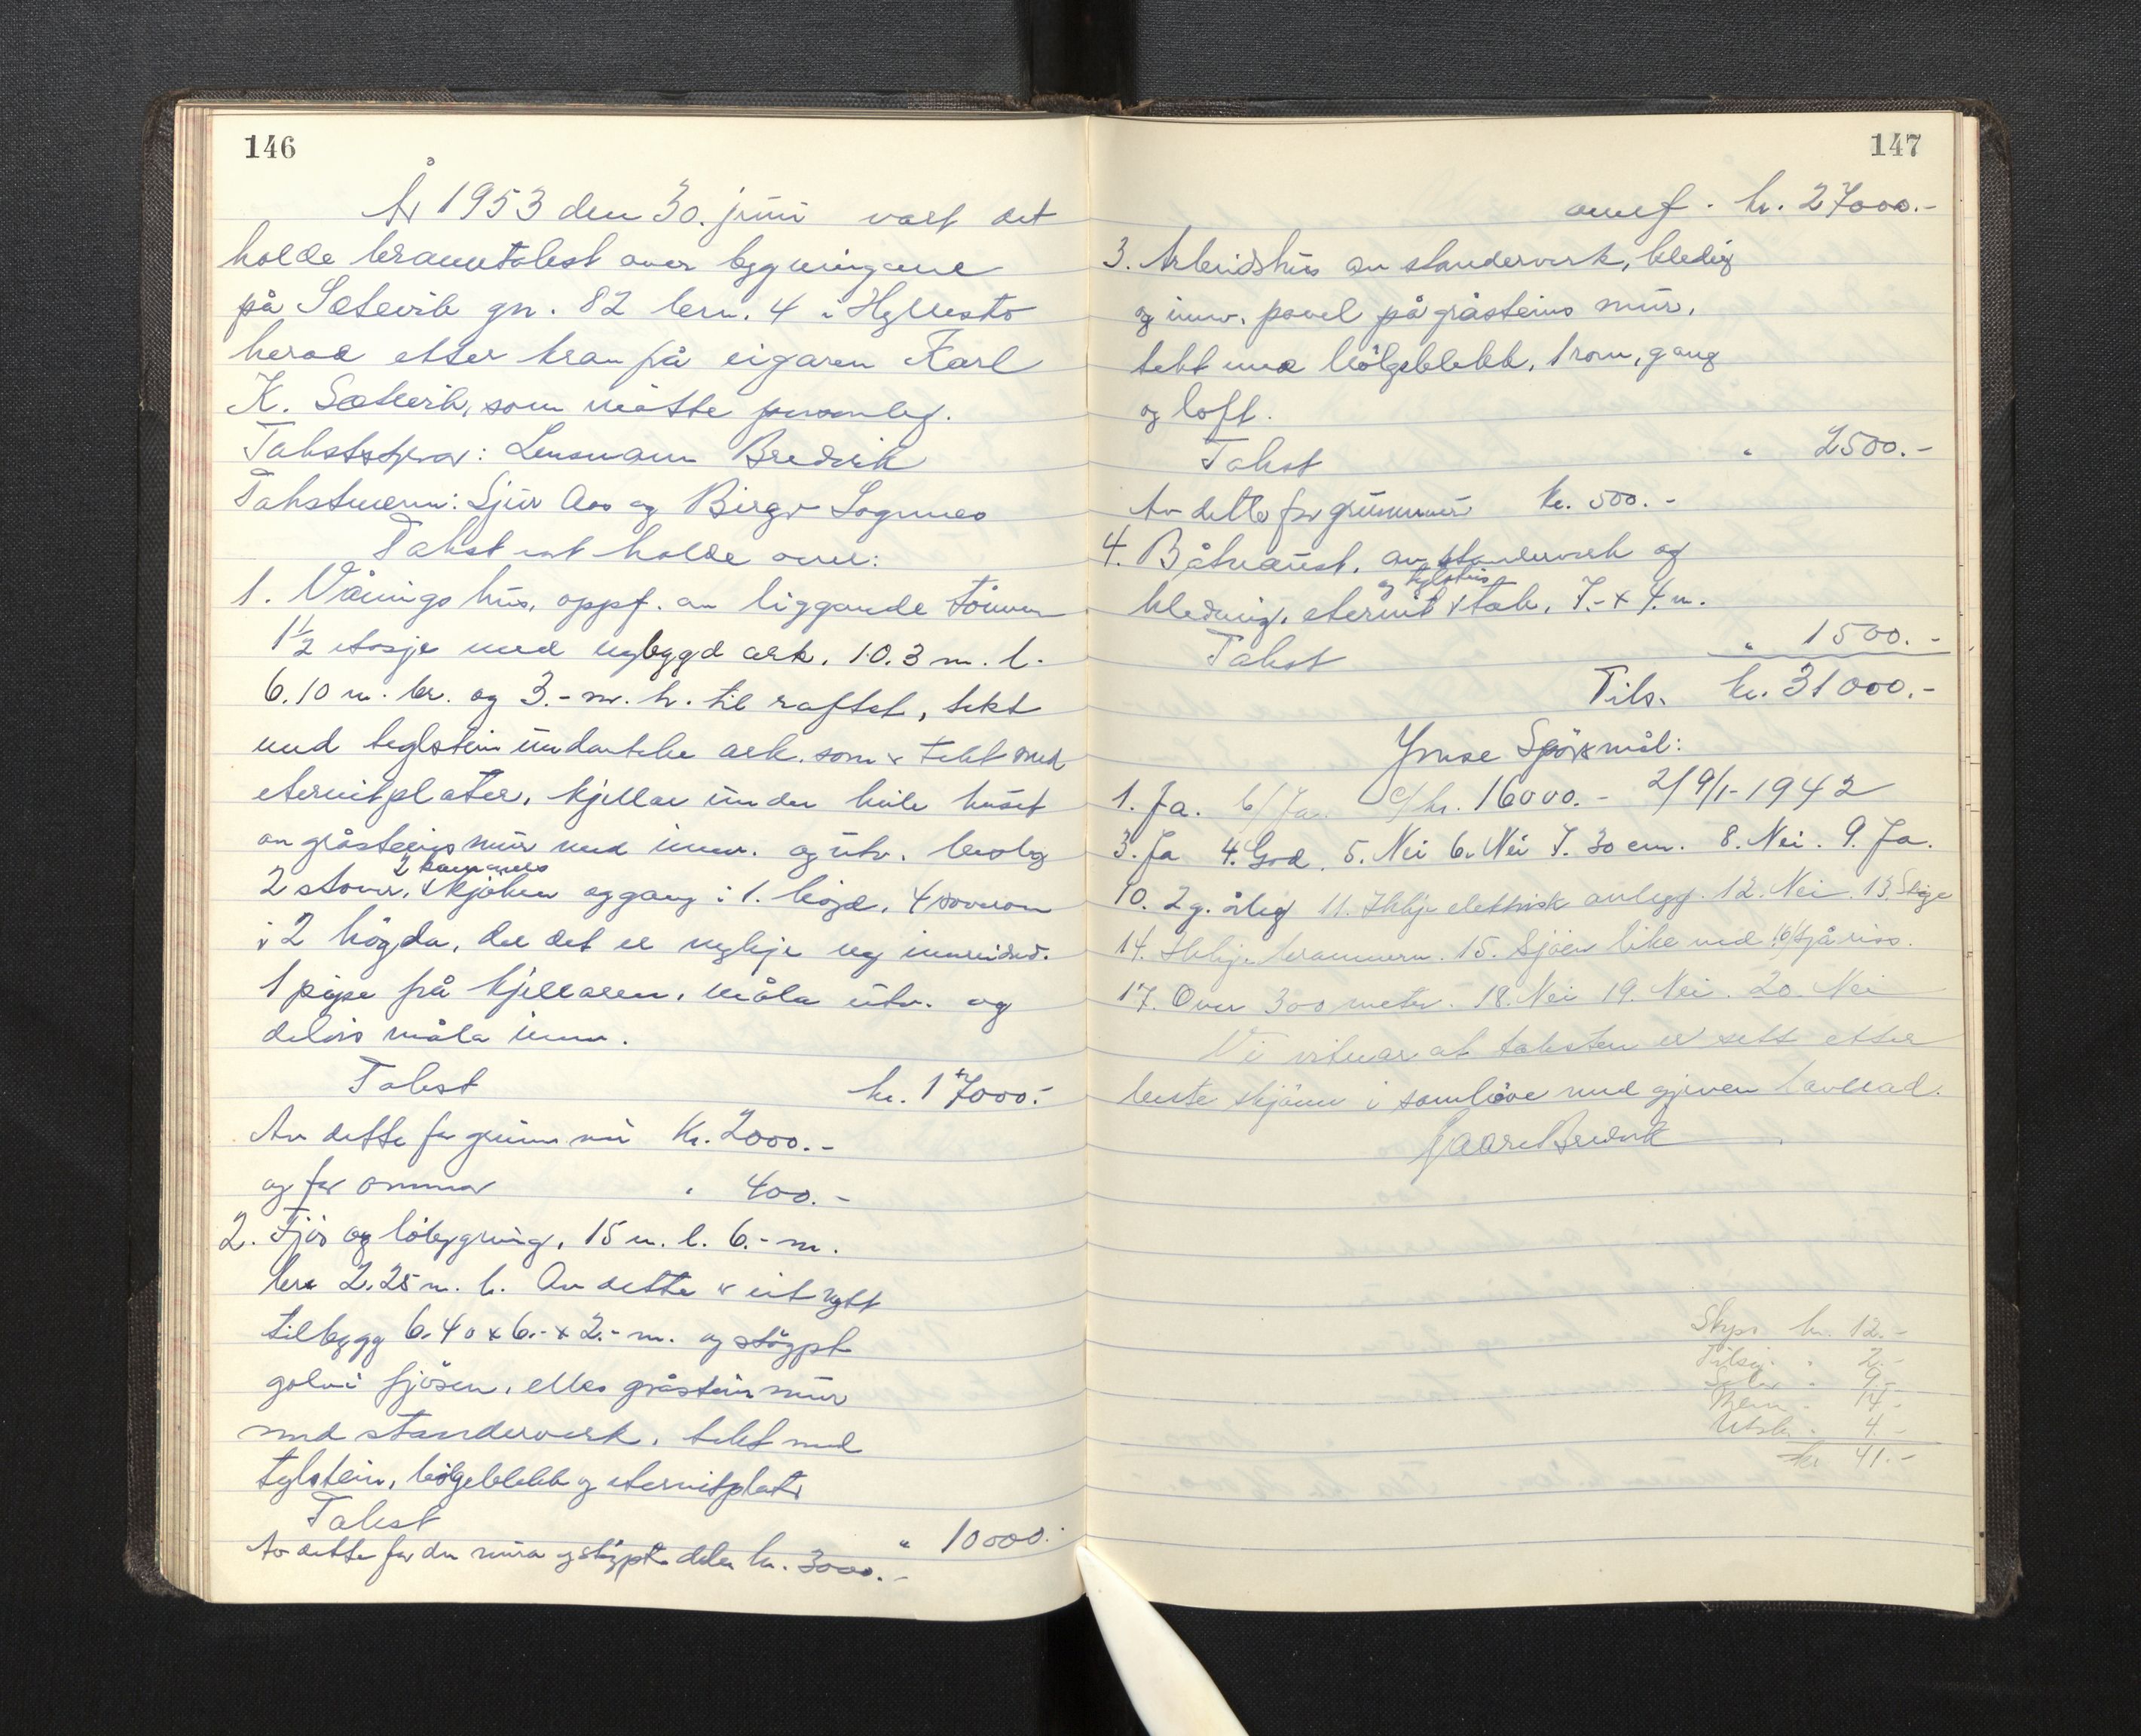 146
År 1953 den 30. juni vart det
halde branntakst over bygningane
på Sætevik gn. 82 bru. 4 i Hyllestad
herad etter krav frå eigaren Karl
K. Sætevik, som møtte personleg.
Takststyrar: Lensmann Bredvik
Takstmenn: Sjur Aas og Birger Sognnes
Takst vart halde over:
1. Våningshus, oppf. av liggande tömmer
1 1/2 etasje med nybygd ark. 10.3 m. l.
6.10 m. br. og 3.- m. h. til raftet, tekt
med teglstein undanteke ark. som er tekt med
eternitplater, kjellar under heile huset
av gråsteins mur med innv. og utv. kledng
2 stover, 2 kammers kjøken og gang i 1. högd. 4 soverom
i 2 högda, der det er nyleje ny innreidnd.
1 pipe frå kjellaren, måla utv. og
delvis måla innv.
Takst kr. 17000.-
Av dette for grunnmur kr. 2000.-
og for omnar " 400.-
2. Fjös og löbygning, 15 m. l. 6.- m.
br. 2.25 m. h. Av dette er eit nytt
tilbygg 6.40 x 6.- x 2.- m. og stöypt
golv i fjösen, elles gråstein mur
med standerverk, tekt med
teglstein, bölgeblekk og eternitplater
Takst " 10000.-
Av dette for den mura og stöypte delen kr. 3000.-
147
overf. kr. 27000.-
3. Arbeidshus av standerverk, kledng
og innv. panel på gråsteins mur,
tekt med bölgeblekk, 1 rom, gang
og loft.
Takst " 2500.-
Av dette for grunnmur kr. 500.-
4. Båtnaust, av standerverk og
kledning, eternit og teglsteins tak, 7.- x 4. m.
Takst " 1500.-
Tils. kr. 31000.-
Ymse Spörsmål:
1. Ja. b/ Ja. c/ kr. 16000.- 2/ 9/1-1942
3. Ja 4. God. 5. Nei 6. Nei 7. 30 cm. 8. Nei. 9. Ja.
10. 2 g. årleg 11. Ikkje elektrisk anlegg. 12. Nei. 13. Stige
14. Ikkje brannvern. 15. Sjöen like ved 16/ Sjå riss.
17. Over 300 meter. 18. Nei 19. Nei. 20. Nei
Vi vitnar at taksten er sett etter
beste skjönn i samhöve med gjeven lovnad.
Kaare Bredvik
Skyss kr. 12.-
Tilsig. " 2.-
Selar " 9.-
Rem. " 14.-
Utskr. " 4.-
kr 41.-